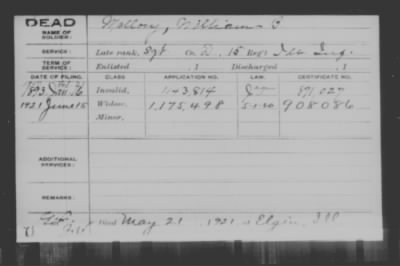 DEAD
NAME OF SOLDIER:
Mallory, William
SERVICE:
Late rank, Sgt Co. D, 15 Reg't Ill. Inf.
TERM OF SERVICE:
Enlisted , 1 Discharged , 1
DATE OF FILING. CLASS. APPLICATION NO. LAW. CERTIFICATE NO.
1893 Invalid, 1143,814 891,027
1921 June 15 Widow, 1,175,498 908086
Minor,
ADDITIONAL SERVICES:
REMARKS:
Died May 21, 1921 at Elgin, Ill